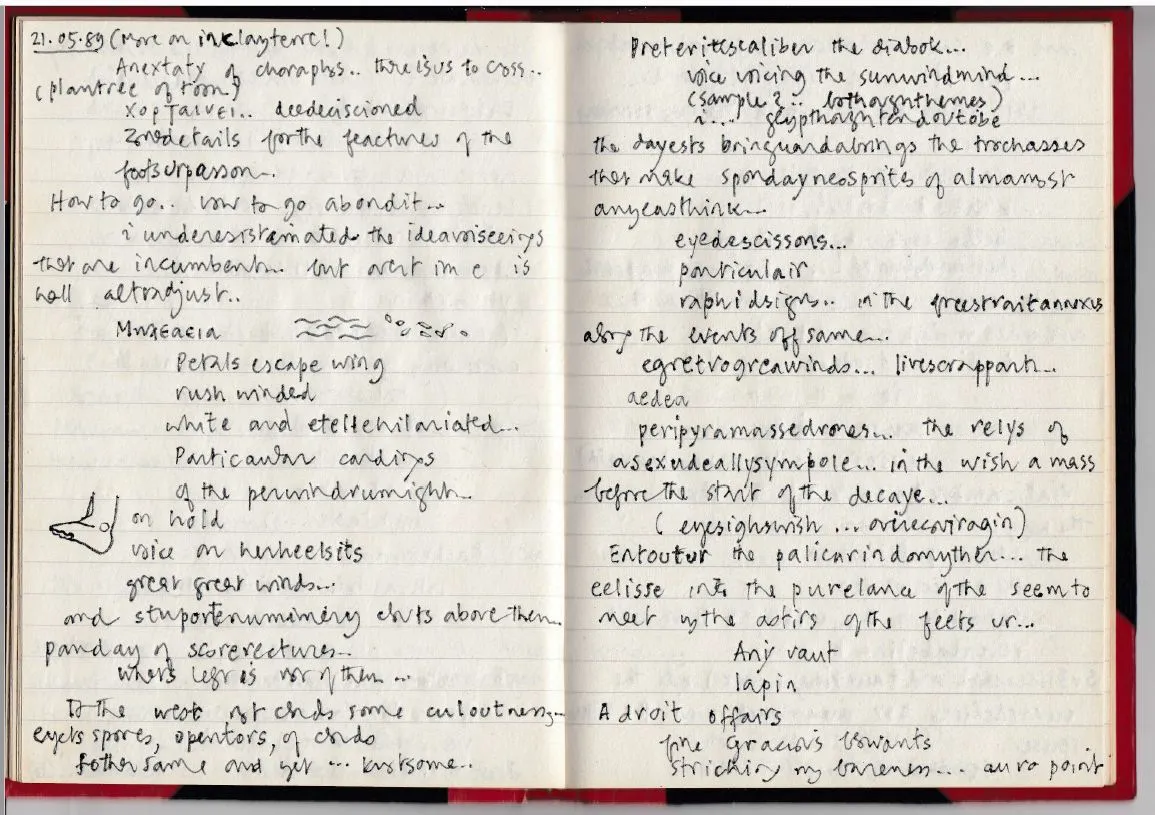 21.05.89 (More on inklayterre!)
Anextaty of choraphs.. threisus to cross..
(plantree of toon)
deedeciscioned
Zonedetails forthe feactures of the
footsurpasson..
How to go.. vow to go abondit...
i underesistamated the ideavoiseeings
that are incumbent... but avert im e is
well altradjust..
Petals escape wing
rush winded
white and etellehilariated...
Particaular cardings
of the perwindrumight..
on hold
voice on herheelsits
great great winds...
and stuportenumimery clouts above them...
panday of scorerectures...
whats legr is nor of them...
to the west, not clouds some culoutness...
eyets spores, opentors, of clouds
fother same and yet... kurtsome..
Preteritescaliber the diabok...
voice voicing the sunwindmind...
(sample?.. bothoughthemes)
i.... glypthoughtendoutobe
the dayests bringuandabrings the trochasses
that make spondayneosprites of almamost
anyeasthink...
eyedescissons...
particulair
raphidsigns.. in the freestraitannexus
along the events off same...
egretrogreawinds... livescrappart...
aedea
peripyramassedrones... the relys of
asexudeallysymbole... in the wish a mass
before the start of the decaye...
(eyesighswish ...
Entoutur the palicarindomyther... the
eelisse into the purelance of the seem to
meet by the of the feets ur...
Any vaut
lapin
A droit offairs
fine Gracious
my bareness.... auro point